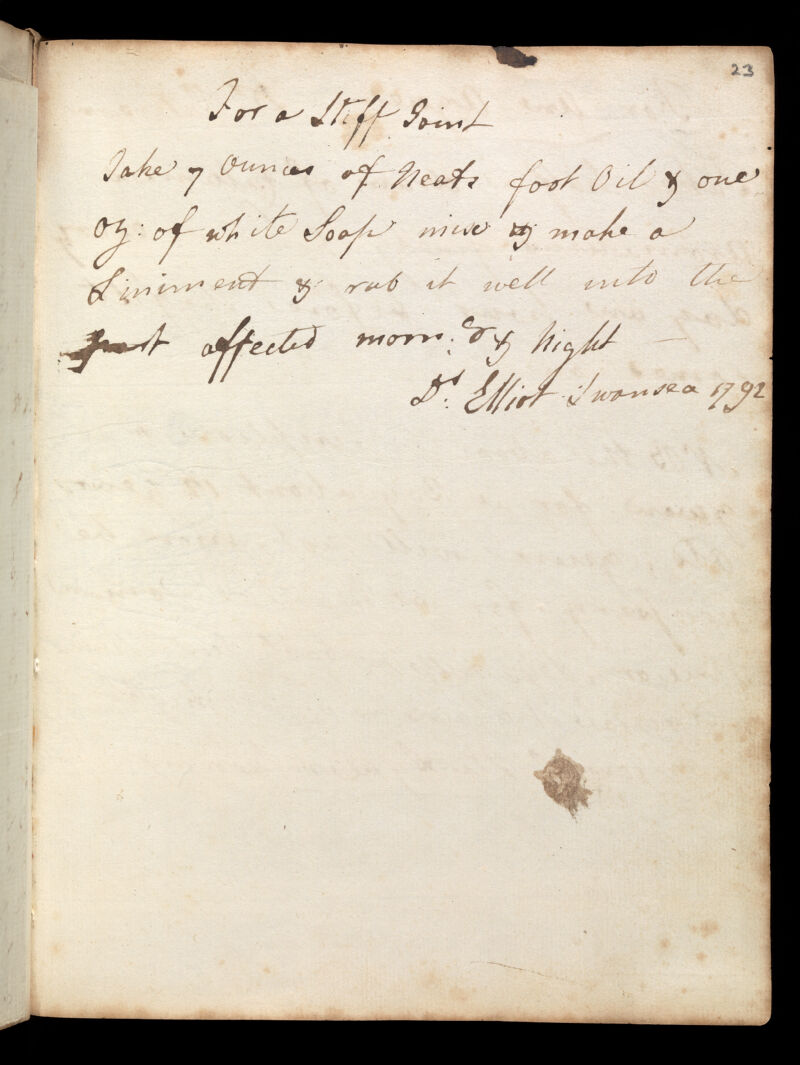 23
For a Stiff Joint
Take 7 Ounces of Neats foot Oil & one
oz: of white Soap mix & make a
Liniment & rub it well into the
part affected morn:g & Night —
Dr: Elliot Swansea 1792